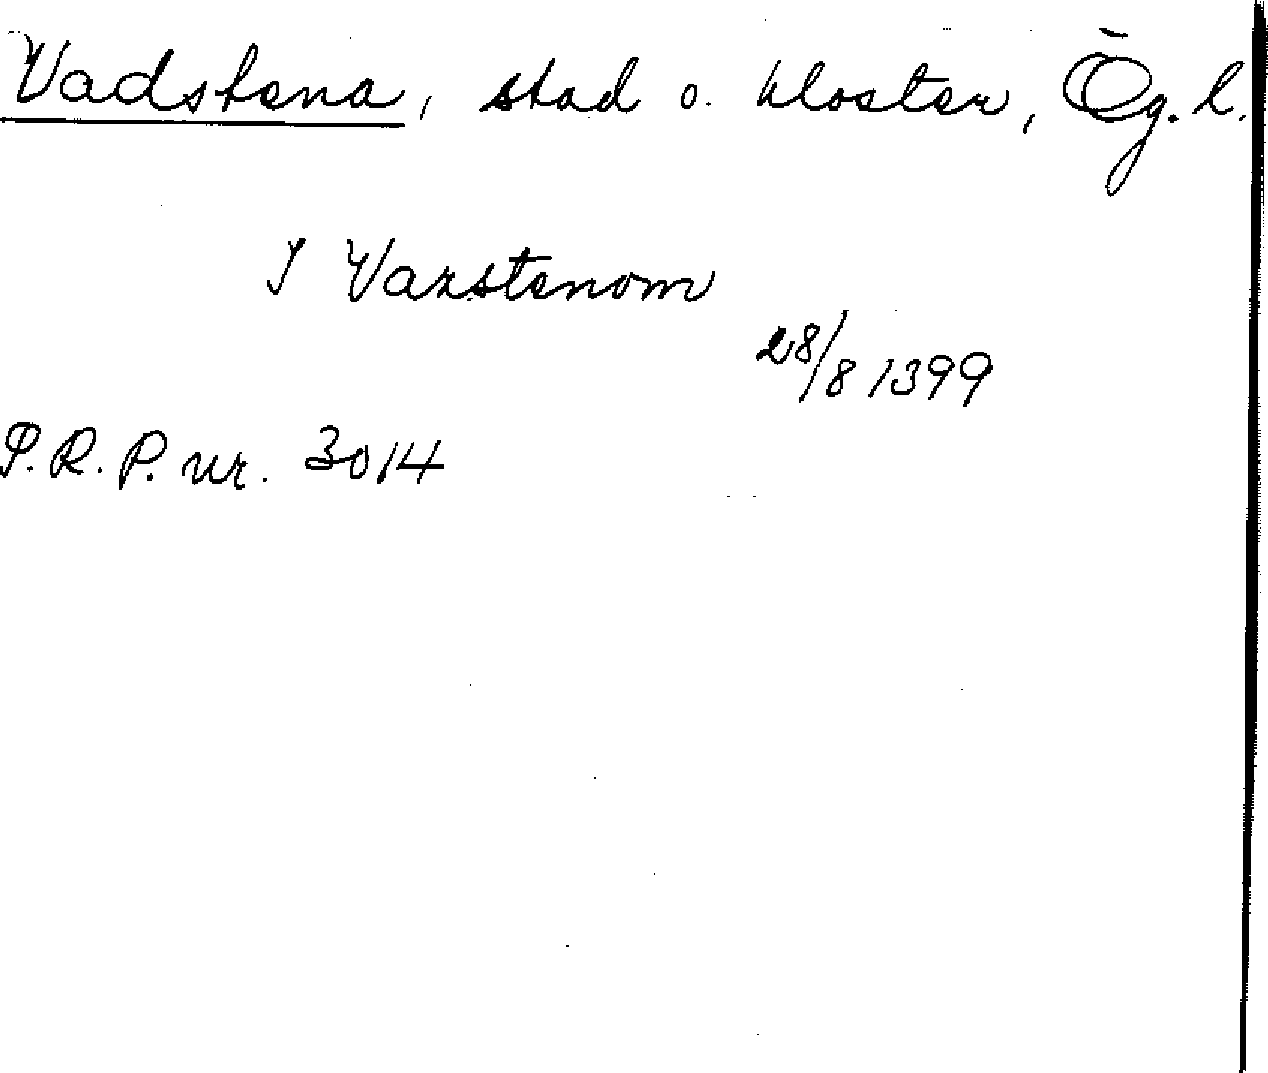 Vadstena, stad o. kloster, Ög. l.
I Varstenom
28/8 1399
P.R.P. nr. 3014